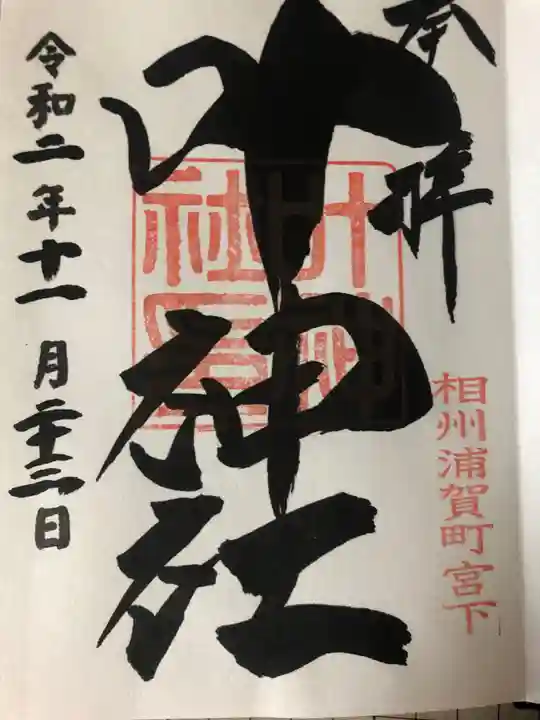 奉拝
相州浦賀町宮下
叶神社
叶神社印
令和二年十一月二十三日